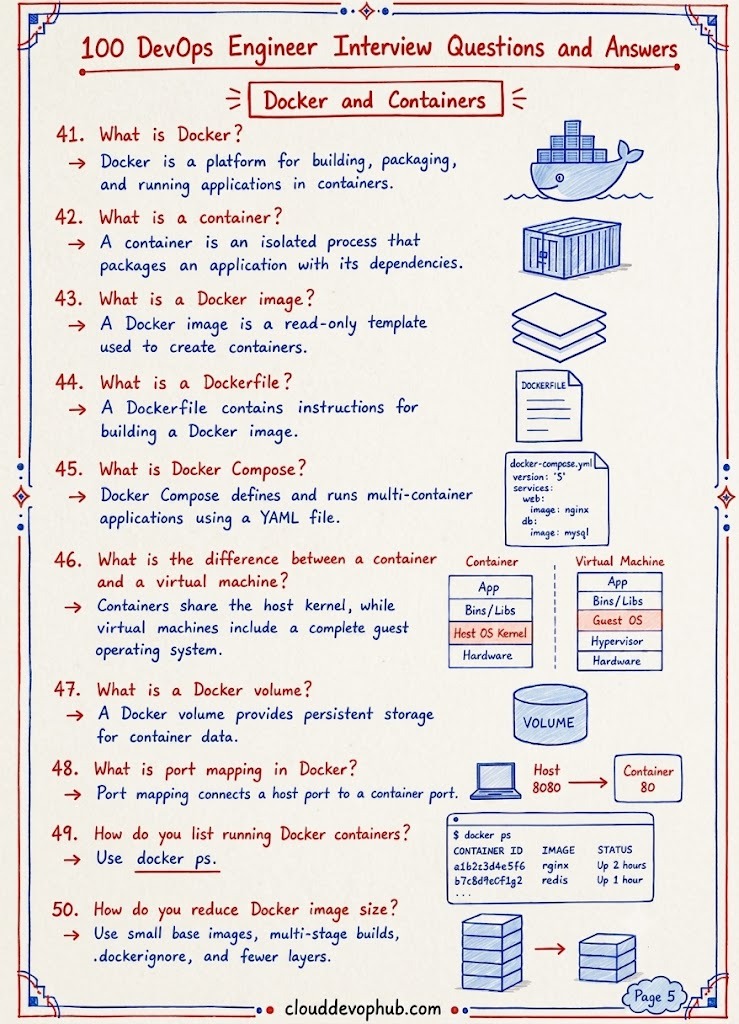 100 DevOps Engineer Interview Questions and Answers
Docker and Containers
41. What is Docker?
→ Docker is a platform for building, packaging,
and running applications in containers.
42. What is a container?
→ A container is an isolated process that
packages an application with its dependencies.
43. What is a Docker image?
→ A Docker image is a read-only template
used to create containers.
44. What is a Dockerfile?
→ A Dockerfile contains instructions for
building a Docker image.
DOCKERFILE
45. What is Docker Compose?
→ Docker Compose defines and runs multi-container
applications using a YAML file.
docker-compose.yml
version: '5'
services:
web:
image: nginx
db:
image: mysql
46. What is the difference between a container
and a virtual machine?
→ Containers share the host kernel, while
virtual machines include a complete guest
operating system.
Container
App
Bins/Libs
Host OS Kernel
Hardware
Virtual Machine
App
Bins/Libs
Guest OS
Hypervisor
Hardware
47. What is a Docker volume?
→ A Docker volume provides persistent storage
for container data.
VOLUME
48. What is port mapping in Docker?
→ Port mapping connects a host port to a container port.
Host
8080
Container
80
49. How do you list running Docker containers?
→ Use docker ps.
$ docker ps
CONTAINER ID IMAGE STATUS
nginx Up 2 hours
redis Up 1 hour
...
50. How do you reduce Docker image size?
→ Use small base images, multi-stage builds,
.dockerignore, and fewer layers.
Page 5
clouddevophub.com